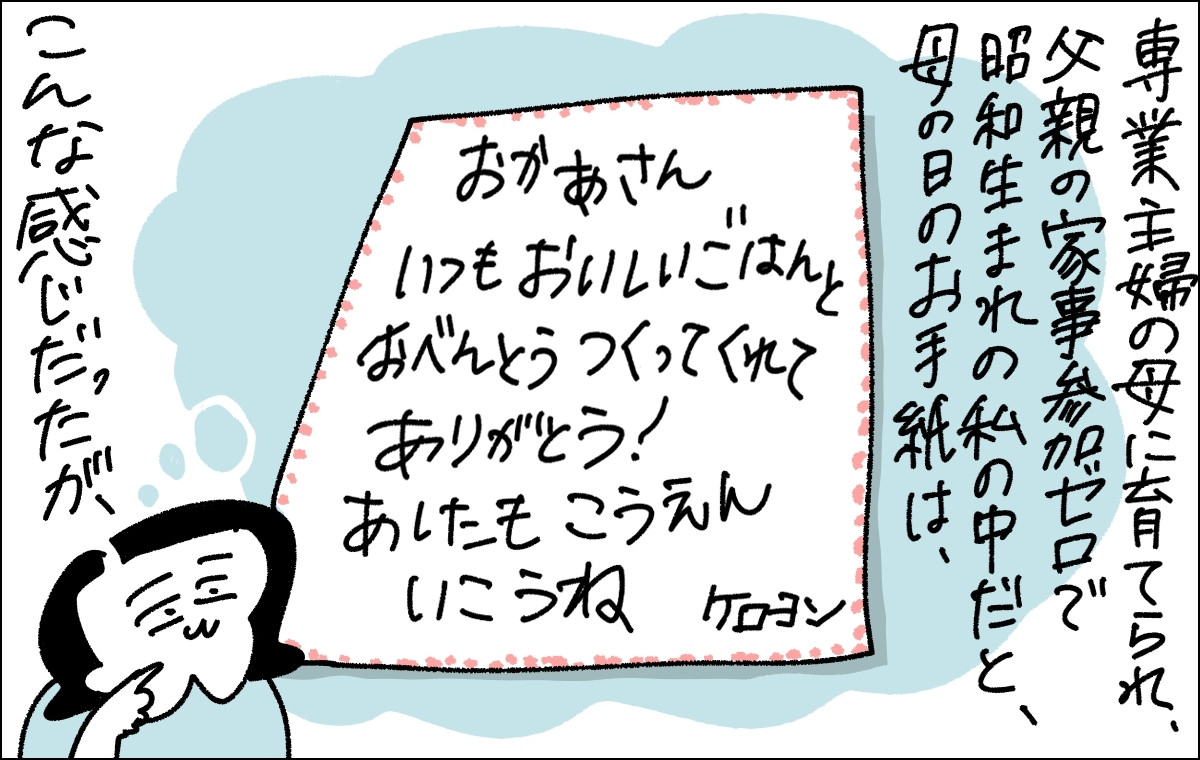 専業主婦の母に育てられ、
父親の家事参加ゼロで
昭和生まれの私の中だと、
母の日のお手紙は、
おかあさん
いつもおいしいごはんと
おべんとうつくってくれて
ありがとう!
あしたもこうえん
いこうね
ケロヨン
こんな感じだったが、